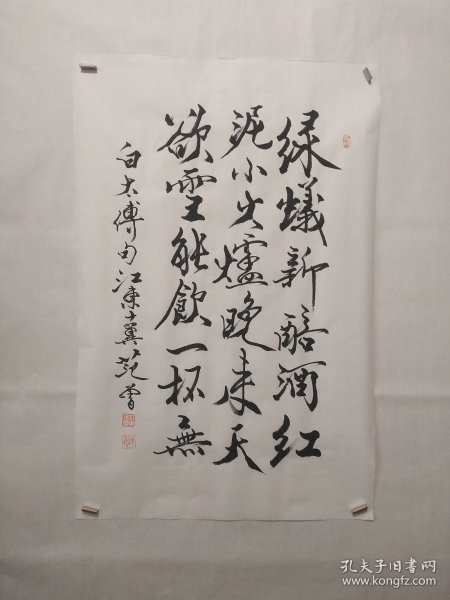 绿蟻新醅酒红
泥小火爐晚来天
欲雪能飲一杯無
白太傅句江東十翼范曾
孔夫子旧书网
www.kongfz.com